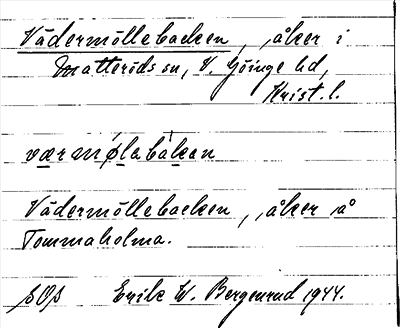 Vädermöllebacken, åker i
Matteröds sn, V. Göinge hd,
Krist. l.
værmø̱la̱bàkan
Vädermöllebacken, åker å
Tommaholma.
Erik W. Bergenrud 1944.